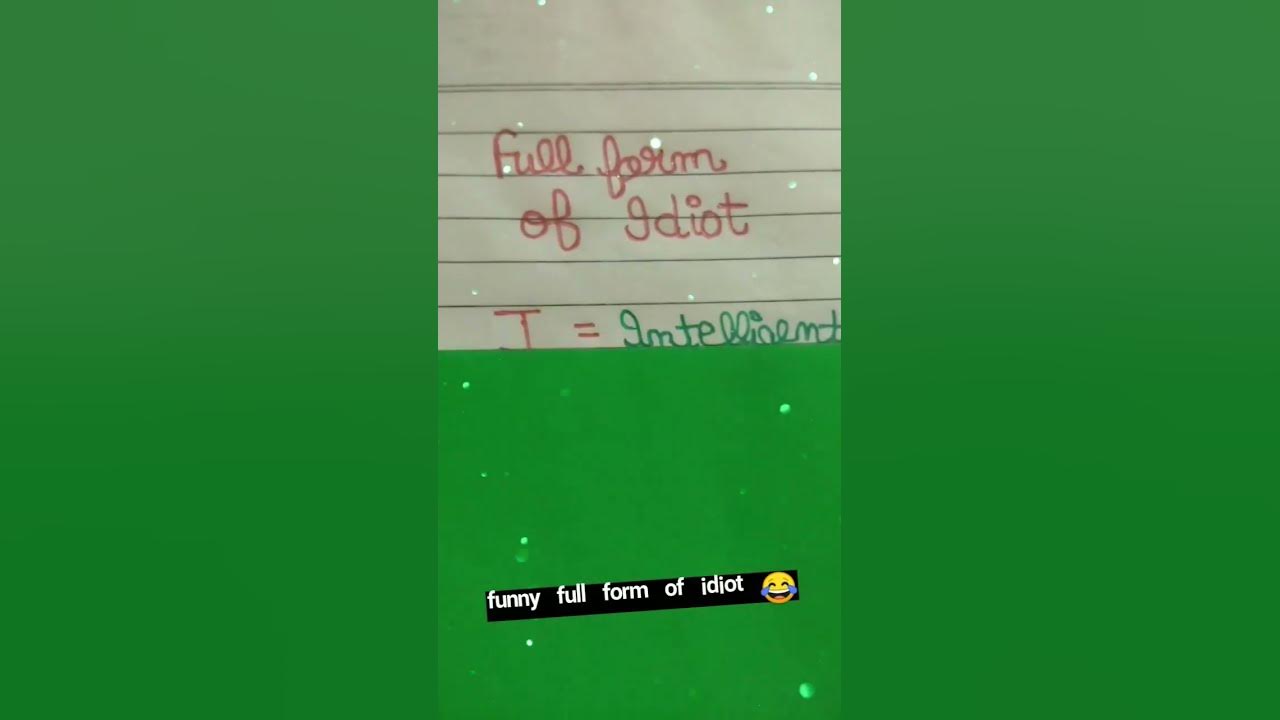 Full form
of Idiot
I = Intelligent
funny full form of idiot 😂